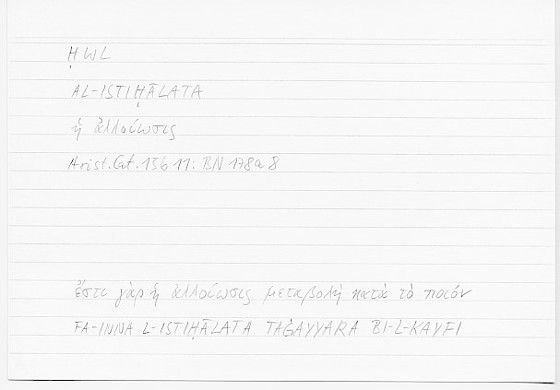 ḤWL
AL-ISTIḤĀLATA
ἡ ἀλλοίωσις
Arist. Cat. 15b11: BN 178a8
ἔστι γὰρ ἡ ἀλλοίωσις μεταβολὴ κατὰ τὸ ποιόν
FA-INNA L-ISTIḤĀLATA TAĠAYYARA BI-L-KAYFI